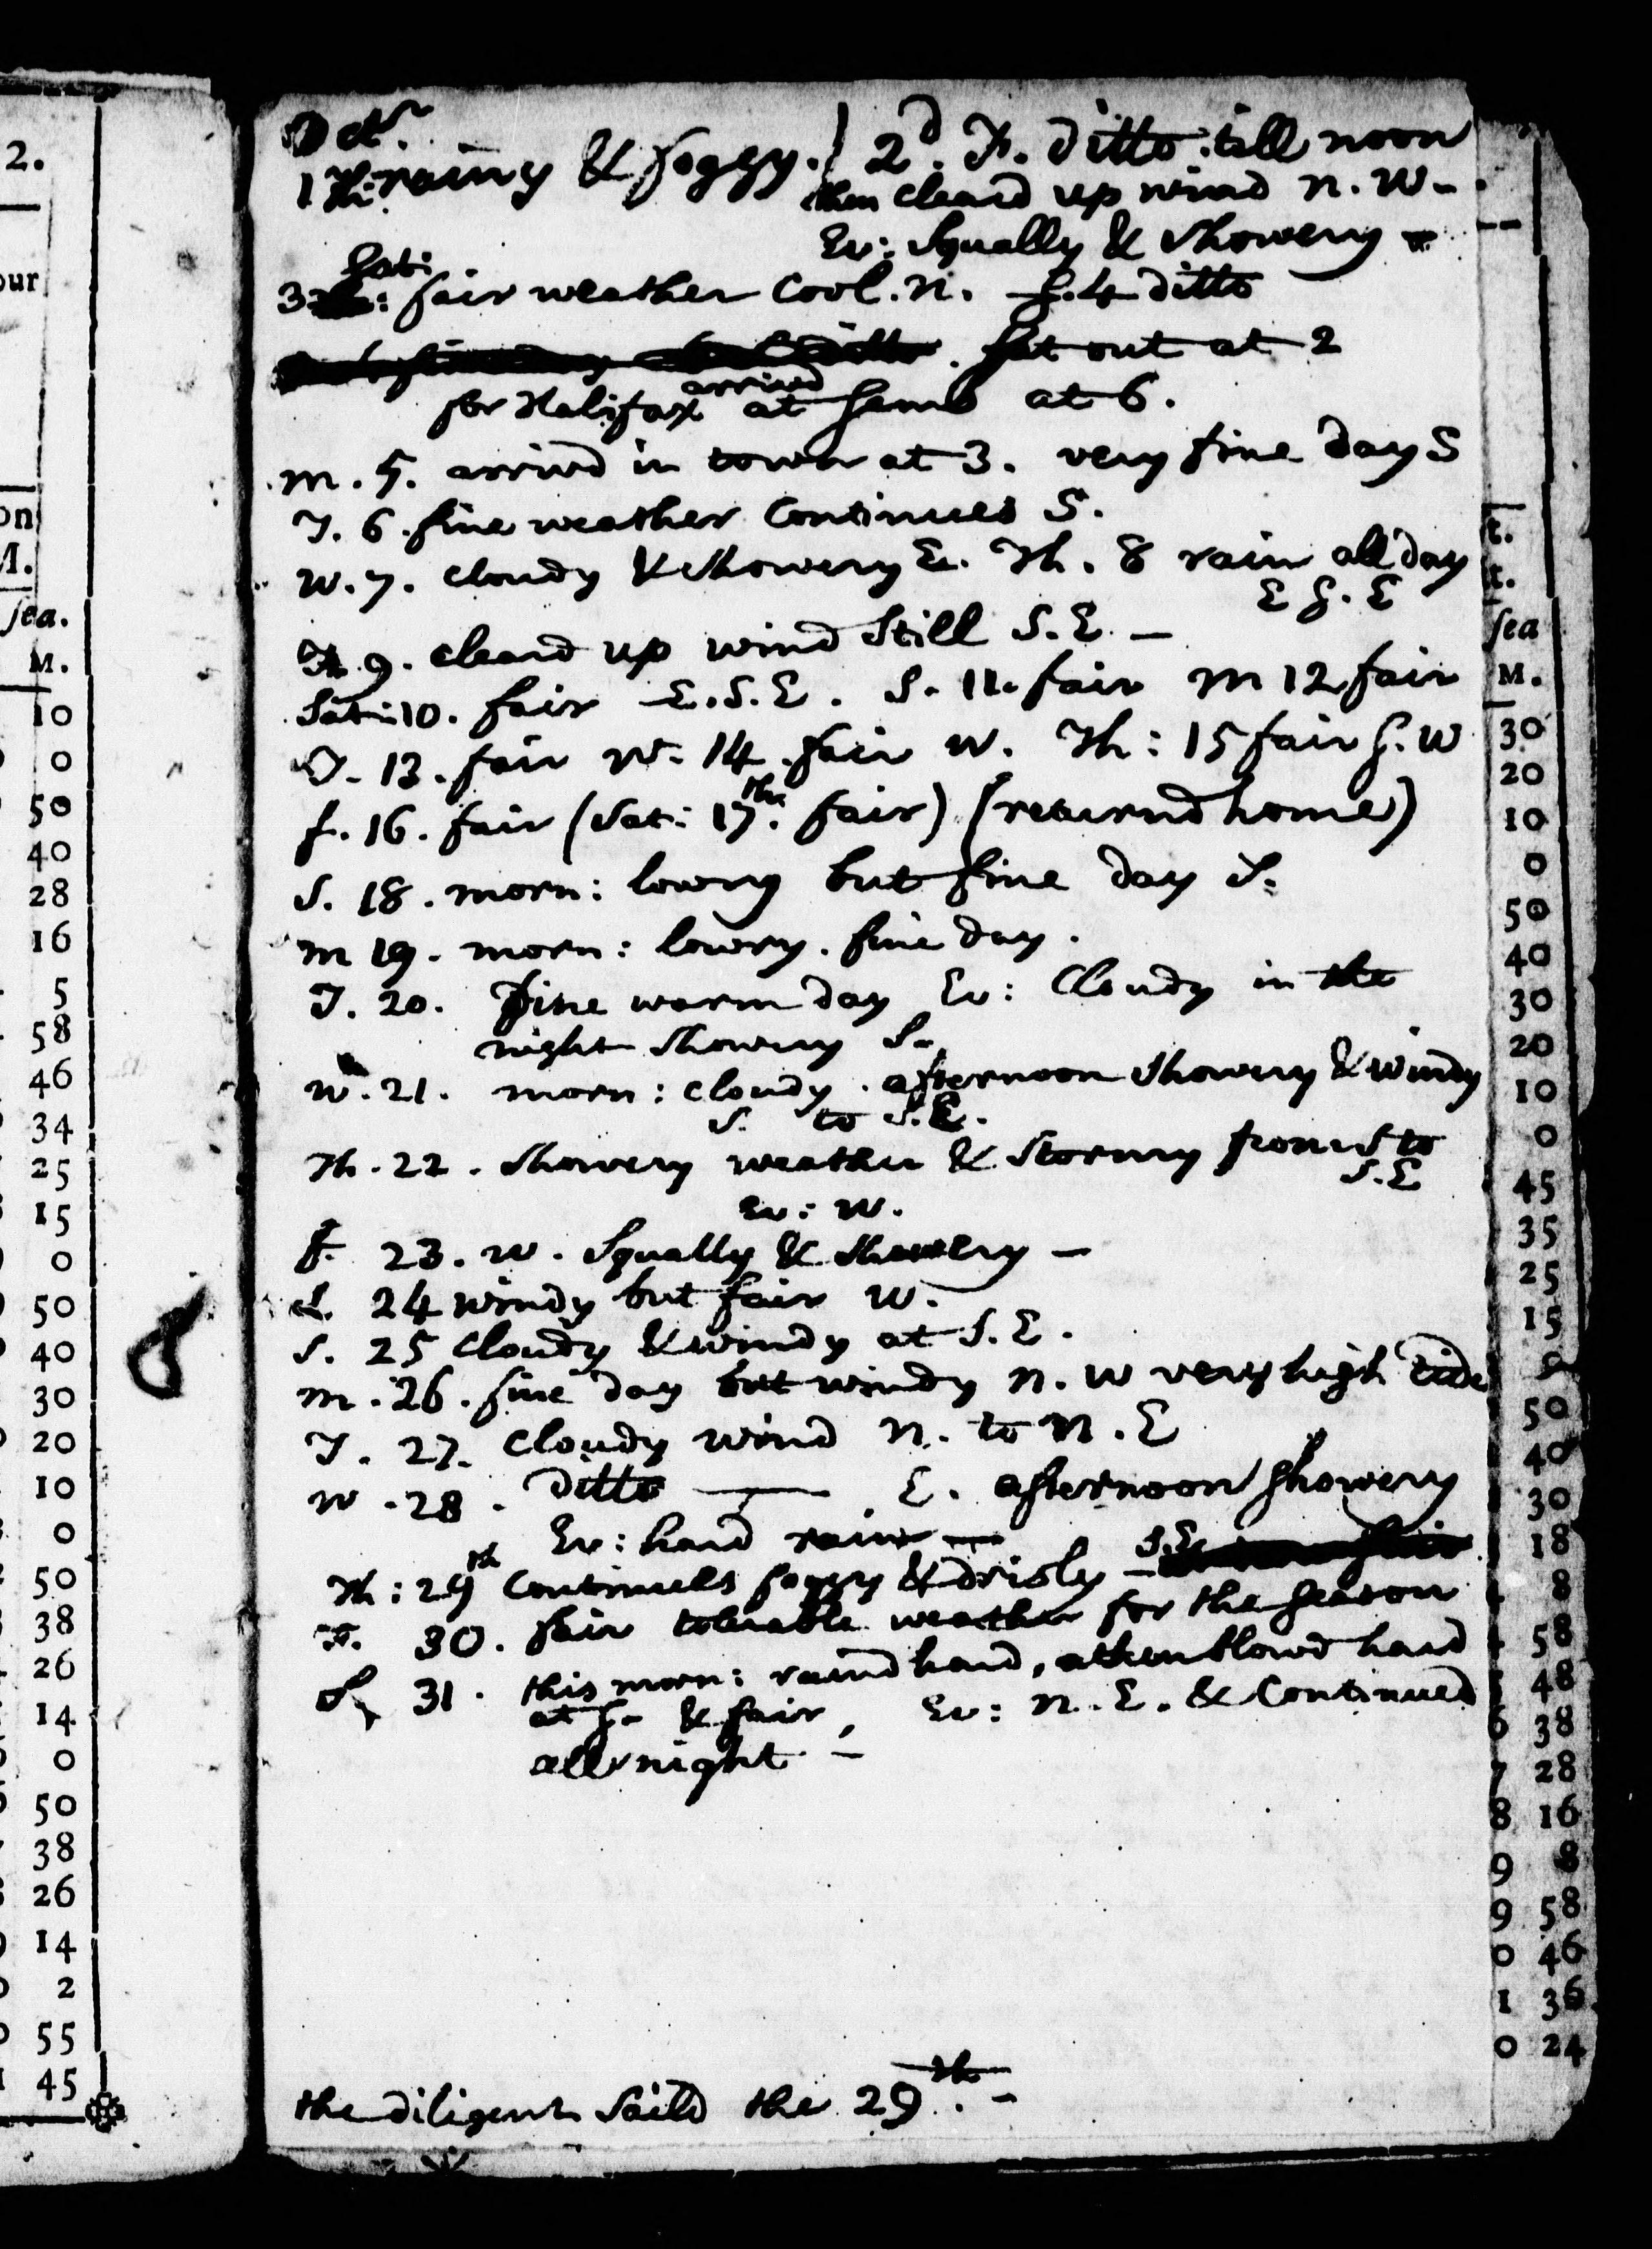 2.
our
on
M.
sea.
M.
10
0
50
40
28
16
5
58
46
34
25
15
0
50
40
30
20
10
0
50
38
26
14
0
50
38
26
14
2
55
45
Octr.
1 Th: rainy & foggy. / 2d. F. Ditto: till noon
then cleard up wind N. W -
Ev: Squally & Showery -
Sat:
3: fair weather Cool. N. S. 4 ditto
Set out at 2
for Halifax arrived at Samb at 6.
M. 5. arrivd in town at 3. very fine day S
T. 6. fine weather Continues S.
W. 7. Cloudy & Showery E. Th. 8 rain all day
E S. E
F. 9. Cleard up wind Still S. E. -
Sat: 10. fair E. S. E. S. 11. fair M 12 fair
T. 13. fair W. 14. fair W. Th: 15 fair S. W
f. 16. fair (Sat: 17th. fair) (returnd home)
S. 18. morn: lowry but fine day S.
M 19. morn: lowry. fine day.
T. 20. Fine warm day Ev: Cloudy in the
night Showry S.
W. 21. morn: Cloudy. afternoon Showery & Windy
S. to S. E.
Th. 22. Showery weather & Stormy from S to
S. E
Ev: W.
f. 23. W. Squally & Showery -
S. 24 windy but fair W.
S. 25 Cloudy & windy at S. E.
M. 26. fine day but windy N. W very high tide
T. 27. Cloudy wind N. to N. E
W. 28. Ditto — E. afternoon Showery
Ev: hard rain —
Th: 29th Continues foggy & drisly - S. E
F. 30. fair tolerable weather for the Season
S 31. this morn: raind hard, & then blowd hard
at S. & fair, Ev: N. E. & Continued
all night -
the diligent Saild the 29th. -
t.
t.
sea
M.
30
20
10
0
50
40
30
20
10
0
45
35
25
15
50
40
30
18
8
58
48
6 38
7 28
8 16
9 8
9 58
0 46
1 36
0 24